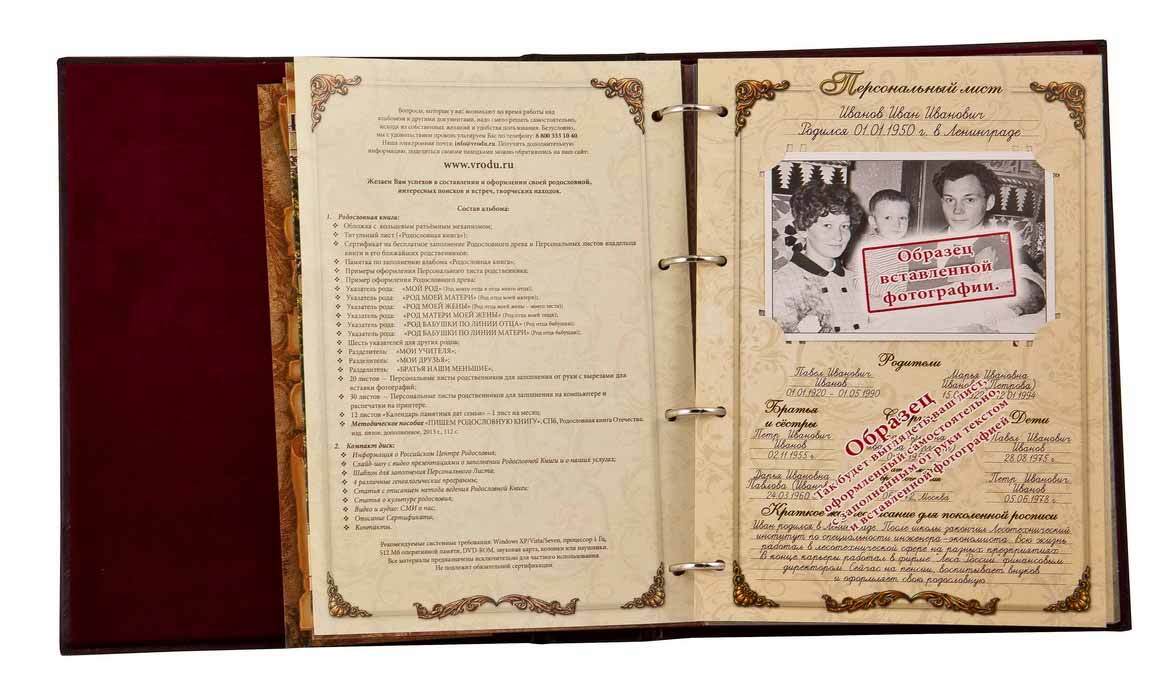 Вопросы, которые у вас возникают во время работы над
альбомом и другими документами, надо само решать самостоятельно,
исходя из собственных желаний и удобства пользования. Безусловно,
мы с удовольствием проконсультируем Вас по телефону: 8 800 333 10 40
Наша электронная почта: info@vrodu.ru. Получить дополнительную
информацию, поделиться своими находками можно обратившись на наш сайт:
www.vrodu.ru
Желаем Вам успехов в составлении и оформлении своей родословной,
интересных поисков и встреч, творческих находок.
Состав альбома:
1. Родословная книга:
❖ Обложка с кольцевым разъёмным механизмом;
❖ Титульный лист («Родословная книга»);
❖ Сертификат на бесплатное заполнение Родословного древа и Персональных листов владельца
книги и его ближайших родственников;
❖ Памятка по заполнению альбома «Родословная книга»;
❖ Примеры оформления Персонального листа родственника;
❖ Пример оформления Родословного древа;
❖ Указатель рода: «МОЙ РОД» (Род моего отца и отца моего отца);
❖ Указатель рода: «РОД МОЕЙ МАТЕРИ» (Род отца моей матери);
❖ Указатель рода: «РОД МОЕЙ ЖЕНЫ» (Род отца моей жены – моего тестя);
❖ Указатель рода: «РОД МАТЕРИ МОЕЙ ЖЕНЫ» (Род отца моей тещи);
❖ Указатель рода: «РОД БАБУШКИ ПО ЛИНИИ ОТЦА» (Род отца бабушки);
❖ Указатель рода: «РОД БАБУШКИ ПО ЛИНИИ МАТЕРИ» (Род отца бабушки);
❖ Шесть указателей для других родов;
❖ Разделитель: «МОИ УЧИТЕЛЯ»;
❖ Разделитель: «МОИ ДРУЗЬЯ»;
❖ Разделитель: «БРАТЬЯ НАШИ МЕНЬШИЕ»;
❖ 20 листов — Персональные листы родственников для заполнения от руки с вырезами для
вставки фотографий;
❖ 30 листов — Персональные листы родственников для заполнения на компьютере и
распечатки на принтере.
❖ 12 листов «Календарь памятных дат семьи» – 1 лист на месяц;
❖ Методическое пособие «ПИШЕМ РОДОСЛОВНУЮ КНИГУ», СПб, Родословная книга Отечества,
изд. пятое, дополненное, 2013 г., 112 с.
2. Компакт диск:
❖ Информация о Российском Центре Родословия;
❖ Слайд-шоу с видео презентациями о заполнении Родословной Книги и о наших услугах;
❖ Шаблон для заполнения Персонального Листа;
❖ 4 различные генеалогические программы;
❖ Статья с описанием метода ведения Родословной Книги;
❖ Статья о культуре родословия;
❖ Видео и аудио: СМИ о нас;
❖ Описание Сертификата;
❖ Контакты.
Рекомендуемые системные требования: Windows XP/Vista/Seven, процессор 1 Гц,
512 Мб оперативной памяти, DVD-ROM, звуковая карта, колонки или наушники.
Все материалы предназначены исключительно для частного использования.
Не подлежит обязательной сертификации
Персональный лист
Иванов Иван Иванович
Родился 01.01.1950 г. в Ленинграде
Образец
вставленной
фотографии.
Родители
Павел Иванович
Иванов
01.01.1920 - 01.05.1990
Марья Ивановна
Иванова (Петрова)
01.1994
Братья
и сёстры
Петр Иванович
Иванов
02.11.1955 г.
Дарья Ивановна
Павлова (Иванова)
24.03.1960
Москва
Дети
Павел Иванович
Иванов
28.08.1975 г.
Петр Иванович
Иванов
05.06.1978 г.
Образец
Так будет выглядеть ваш лист,
оформленный самостоятельно
с заполненным от руки текстом
и вставленной фотографией
Краткое жизнеописание для поколенной росписи
Иван родился в Ленинграде. После школы закончил Лесотехнический
институт по специальности инженер-экономист. Всю жизнь
работал в лесотехнической сфере на разных предприятиях.
В конце карьеры работал в фирме "Леса России" финансовым
директором. Сейчас на пенсии, воспитывает внуков
и оформляет свою родословную